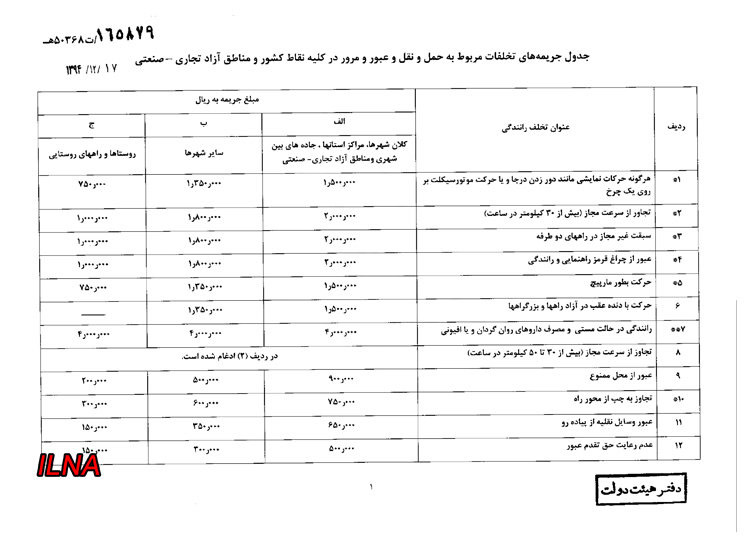 ۱۶۵۸۷۹/ت۵۰۳۶۸هـ
۱۳۹۴/۱۲/۱۷
جدول جریمه‌های تخلفات مربوط به حمل و نقل و عبور و مرور در کلیه نقاط کشور و مناطق آزاد تجاری –صنعتی
ردیف عنوان تخلف رانندگی مبلغ جریمه به ریال
الف ب ج
کلان شهرها، مراکز استانها ، جاده های بین
شهری ومناطق آزاد تجاری– صنعتی سایر شهرها روستاها و راههای روستایی
۱* هرگونه حرکات نمایشی مانند دور زدن درجا و یا حرکت موتورسیکلت بر
روی یک چرخ ۱٫۵۰۰٫۰۰۰ ۱٫۳۵۰٫۰۰۰ ۷۵۰٫۰۰۰
۲* تجاوز از سرعت مجاز (بیش از ۳۰ کیلومتر در ساعت) ۲٫۰۰۰٫۰۰۰ ۱٫۸۰۰٫۰۰۰ ۱٫۰۰۰٫۰۰۰
۳* سبقت غیر مجاز در راههای دو طرفه ۲٫۰۰۰٫۰۰۰ ۱٫۸۰۰٫۰۰۰ ۱٫۰۰۰٫۰۰۰
۴* عبور از چراغ قرمز راهنمایی و رانندگی ۲٫۰۰۰٫۰۰۰ ۱٫۸۰۰٫۰۰۰ ۱٫۰۰۰٫۰۰۰
۵* حرکت بطور مارپیچ ۱٫۵۰۰٫۰۰۰ ۱٫۳۵۰٫۰۰۰ ۷۵۰٫۰۰۰
۶ حرکت با دنده عقب در آزاد راهها و بزرگراهها ۱٫۵۰۰٫۰۰۰ ۱٫۳۵۰٫۰۰۰ ——
۷** رانندگی در حالت مستی و مصرف داروهای روان گردان و یا افیونی ۴٫۰۰۰٫۰۰۰ ۴٫۰۰۰٫۰۰۰ ۴٫۰۰۰٫۰۰۰
۸ تجاوز از سرعت مجاز (بیش از ۳۰ تا ۵۰ کیلومتر در ساعت) در ردیف (۲) ادغام شده است.
۹ عبور از محل ممنوع ۹۰۰٫۰۰۰ ۵۰۰٫۰۰۰ ۲۰۰٫۰۰۰
۱۰* تجاوز به چپ از محور راه ۷۵۰٫۰۰۰ ۶۰۰٫۰۰۰ ۳۰۰٫۰۰۰
۱۱ عبور وسایل نقلیه از پیاده رو ۶۵۰٫۰۰۰ ۳۵۰٫۰۰۰ ۱۵۰٫۰۰۰
۱۲ عدم رعایت حق تقدم عبور ۵۰۰٫۰۰۰ ۳۰۰٫۰۰۰ ۱۵۰٫۰۰۰
ILNA
۱
دفتر هیئت دولت